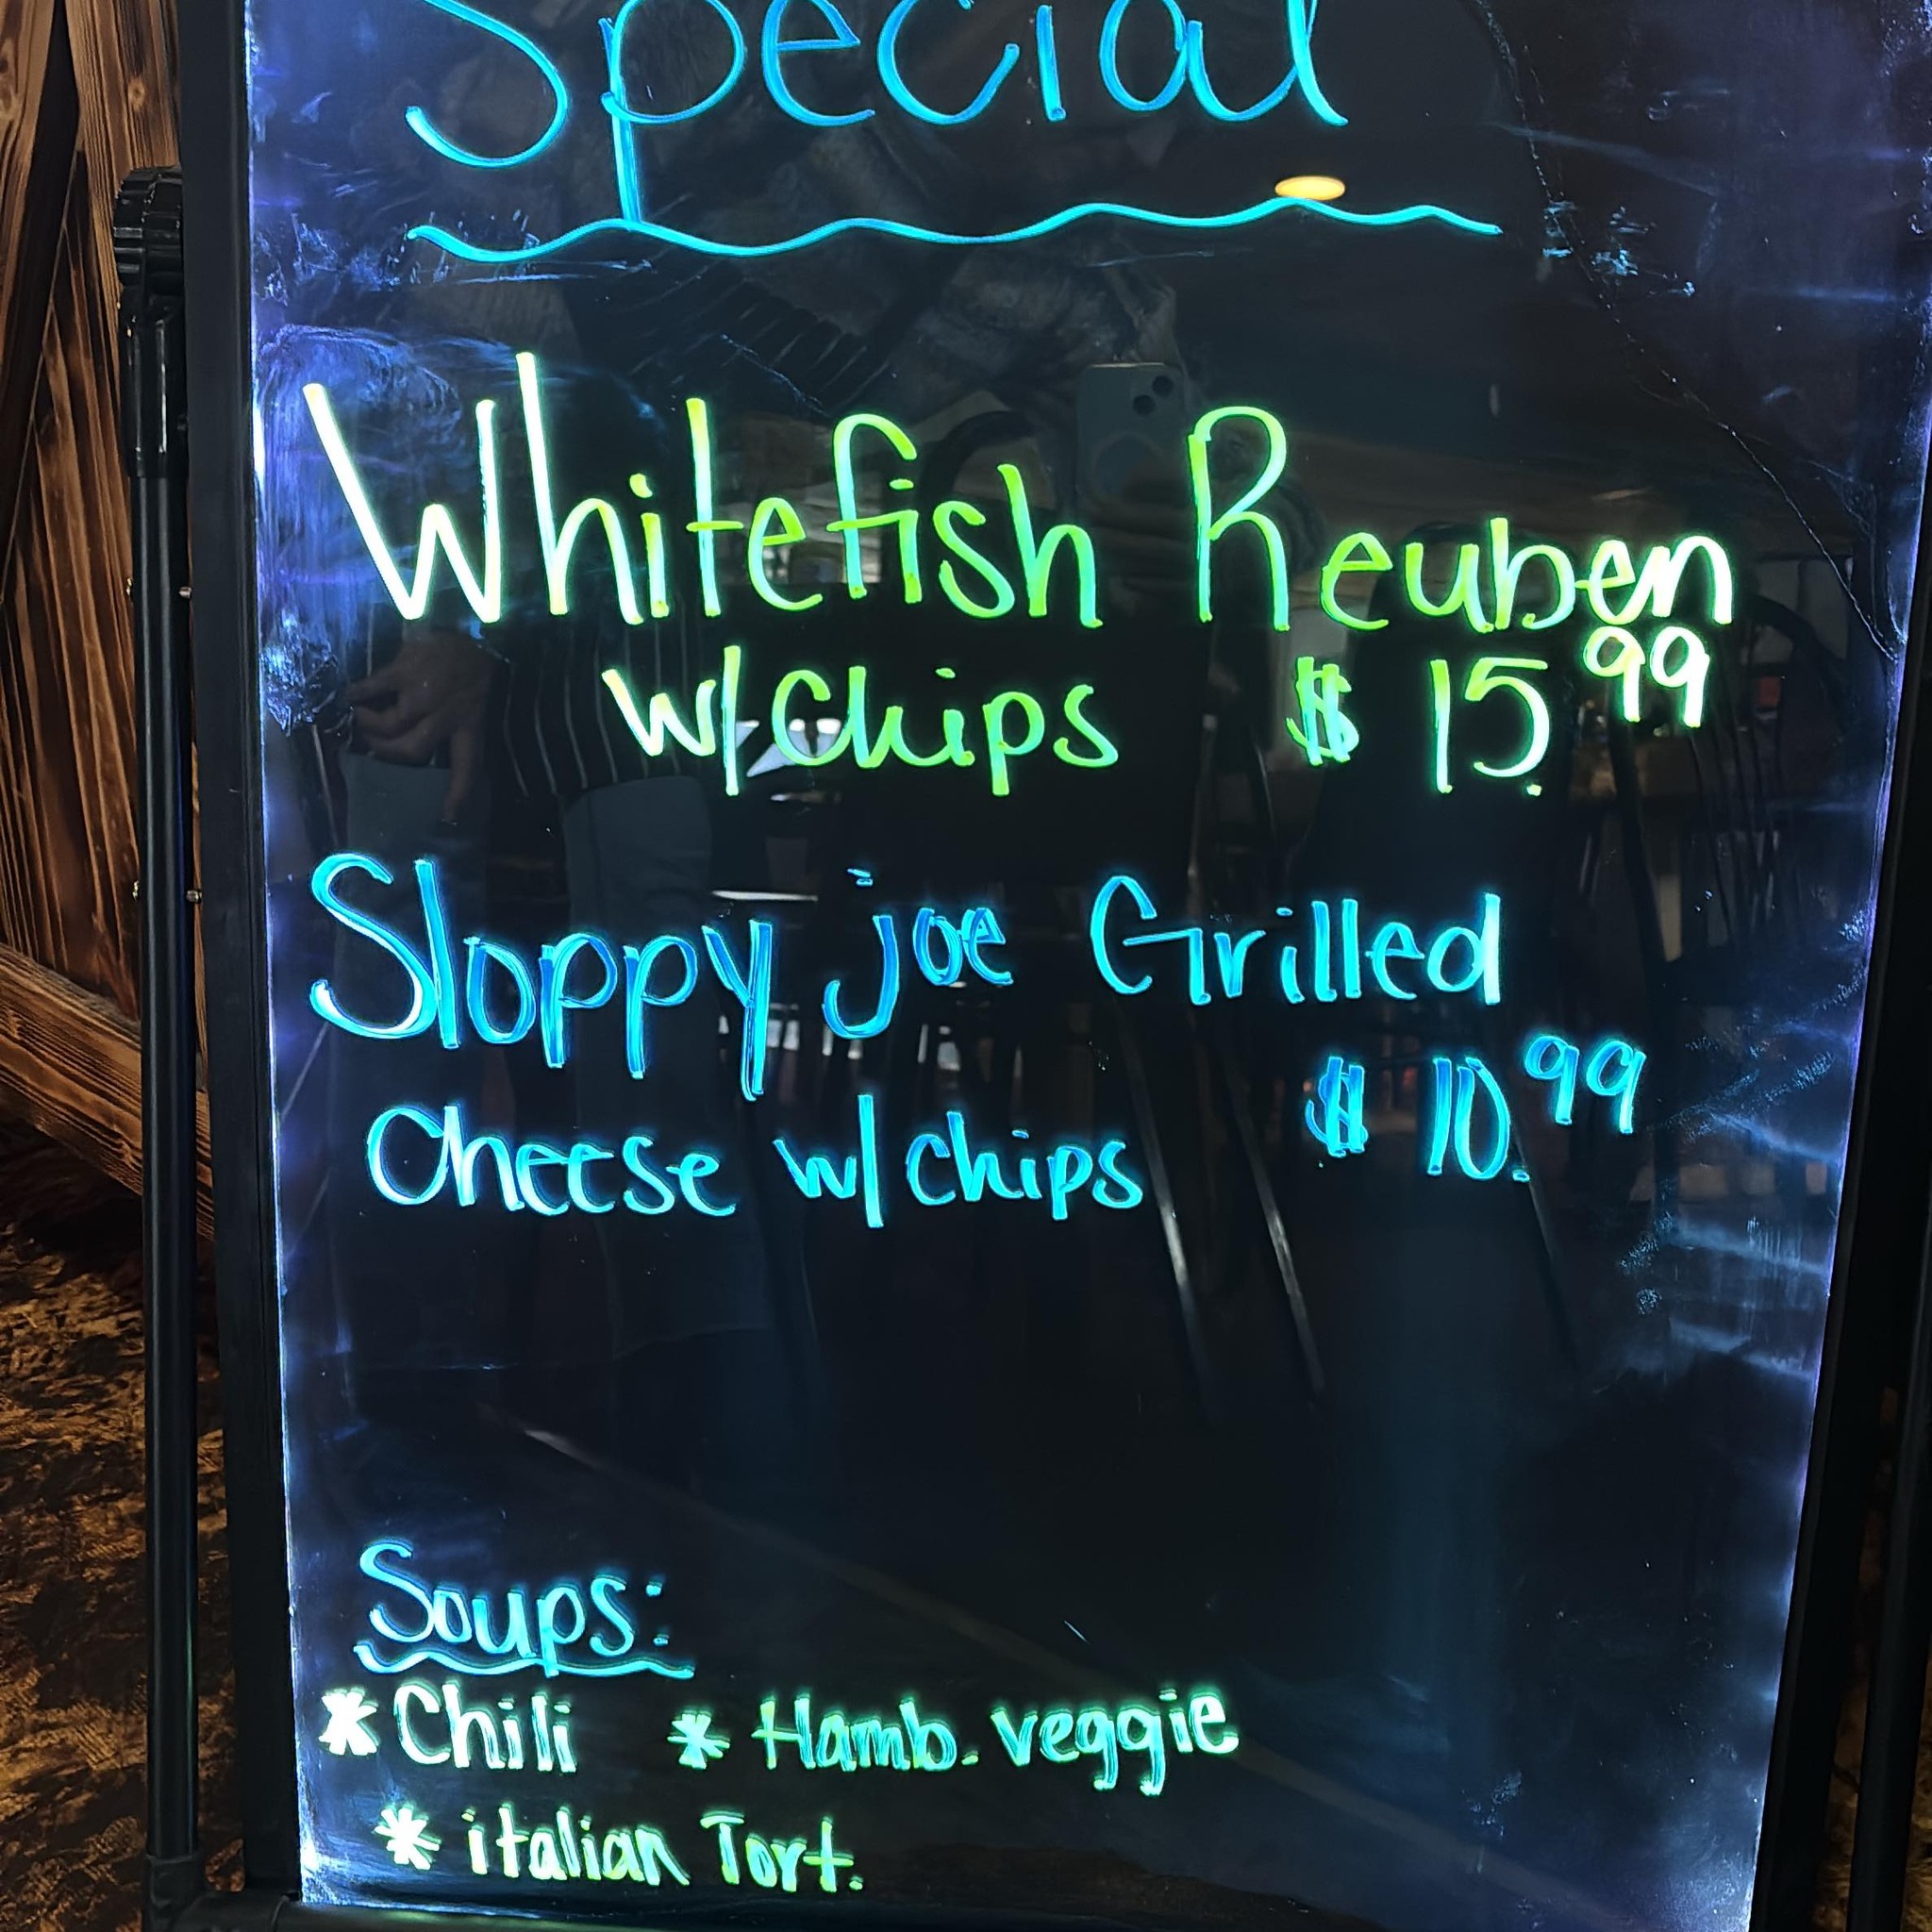 Special
Whitefish Reuben
w/Chips $ 15.99
Sloppy joe Grilled
Cheese w/chips $ 10.99
Soups:
* Chili * Hamb. veggie
* italian Tort.